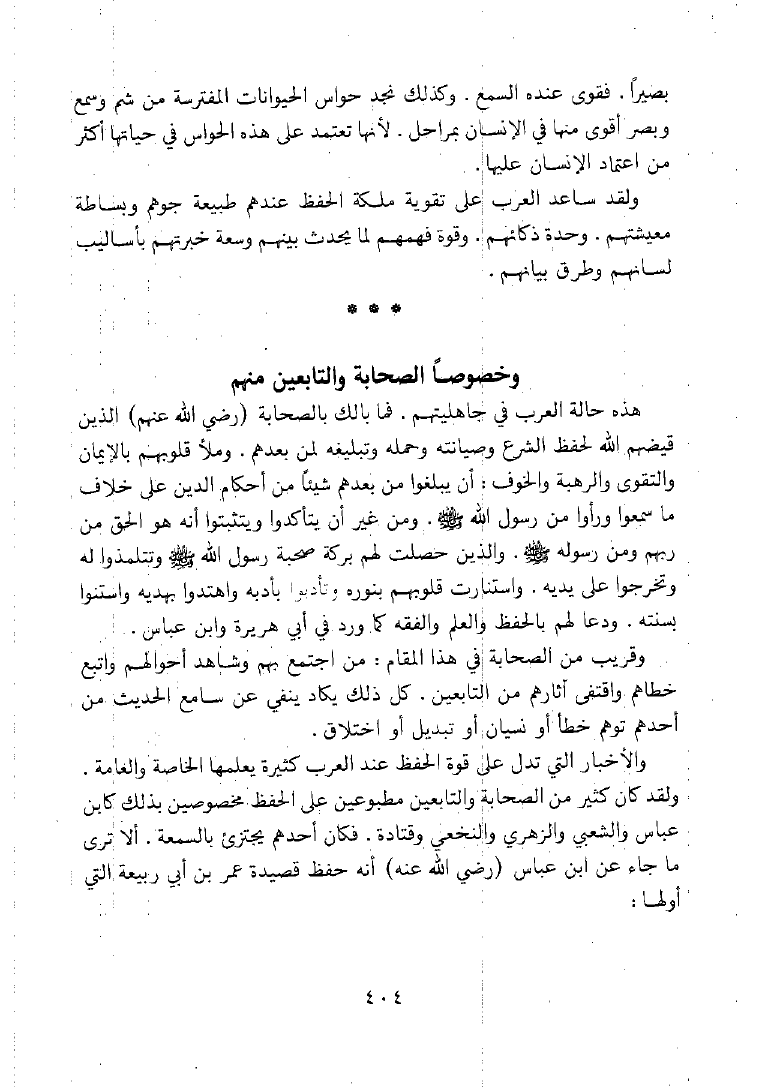 بصيراً . فقوى عنده السمع . وكذلك نجد حواس الحيوانات المفترسة من شم وسمع
وبصر أقوى منها في الإنسان بمراحل . لأنها تعتمد على هذه الحواس في حياتها أكثر
من اعتماد الإنسان عليها .
ولقد ساعد العرب على تقوية ملكة الحفظ عندهم طبيعة جوهم وبساطة
معيشتهم . وحدة ذكائهم . وقوة فهمهم لما يحدث بينهم وسعة خبرتهم بأساليب
لسانهم وطرق بيانهم .
* * *
وخصوصاً الصحابة والتابعين منهم
هذه حالة العرب في جاهليتهم . فما بالك بالصحابة (رضي الله عنهم) الذين
قيضهم الله لحفظ الشرع وصيانته وحمله وتبليغه لمن بعدهم . وملأ قلوبهم بالإيمان
والتقوى والرهبة والخوف : أن يبلغوا من بعدهم شيئاً من أحكام الدين على خلاف
ما سمعوا ورأوا من رسول الله ﷺ . ومن غير أن يتأكدوا ويتثبتوا أنه هو الحق من
ربهم ومن رسوله ﷺ . والذين حصلت لهم بركة صحبة رسول الله ﷺ وتتلمذوا له
وتخرجوا على يديه . واستنارت قلوبهم بنوره وتأدبوا بأدبه واهتدوا بهديه واستنوا
بسنته . ودعا لهم بالحفظ والعلم والفقه كما ورد في أبي هريرة وابن عباس .
وقريب من الصحابة في هذا المقام : من اجتمع بهم وشاهد أحوالهم واتبع
خطاهم واقتفى آثارهم من التابعين . كل ذلك يكاد ينفي عن سامع الحديث من
أحدهم توهم خطأ أو نسيان أو تبديل أو اختلاق .
والأخبار التي تدل على قوة الحفظ عند العرب كثيرة يعلمها الخاصة والعامة .
ولقد كان كثير من الصحابة والتابعين مطبوعين على الحفظ مخصوصين بذلك كابن
عباس والشعبي والزهري والنخعي وقتادة . فكان أحدهم يجتزئ بالسمعة . ألا ترى
ما جاء عن ابن عباس (رضي الله عنه) أنه حفظ قصيدة عمر بن أبي ربيعة التي
أولها :
٤٠٤